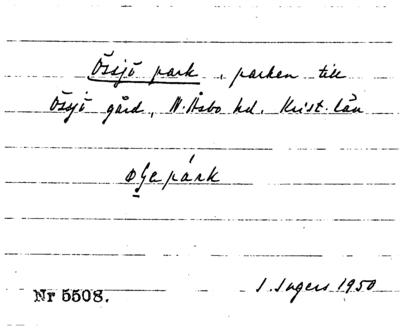 Össjö park, parken till
Össjö gård, N. Åsbo hd. Krist. län
park
Nr 5508.
I. Ingers 1950